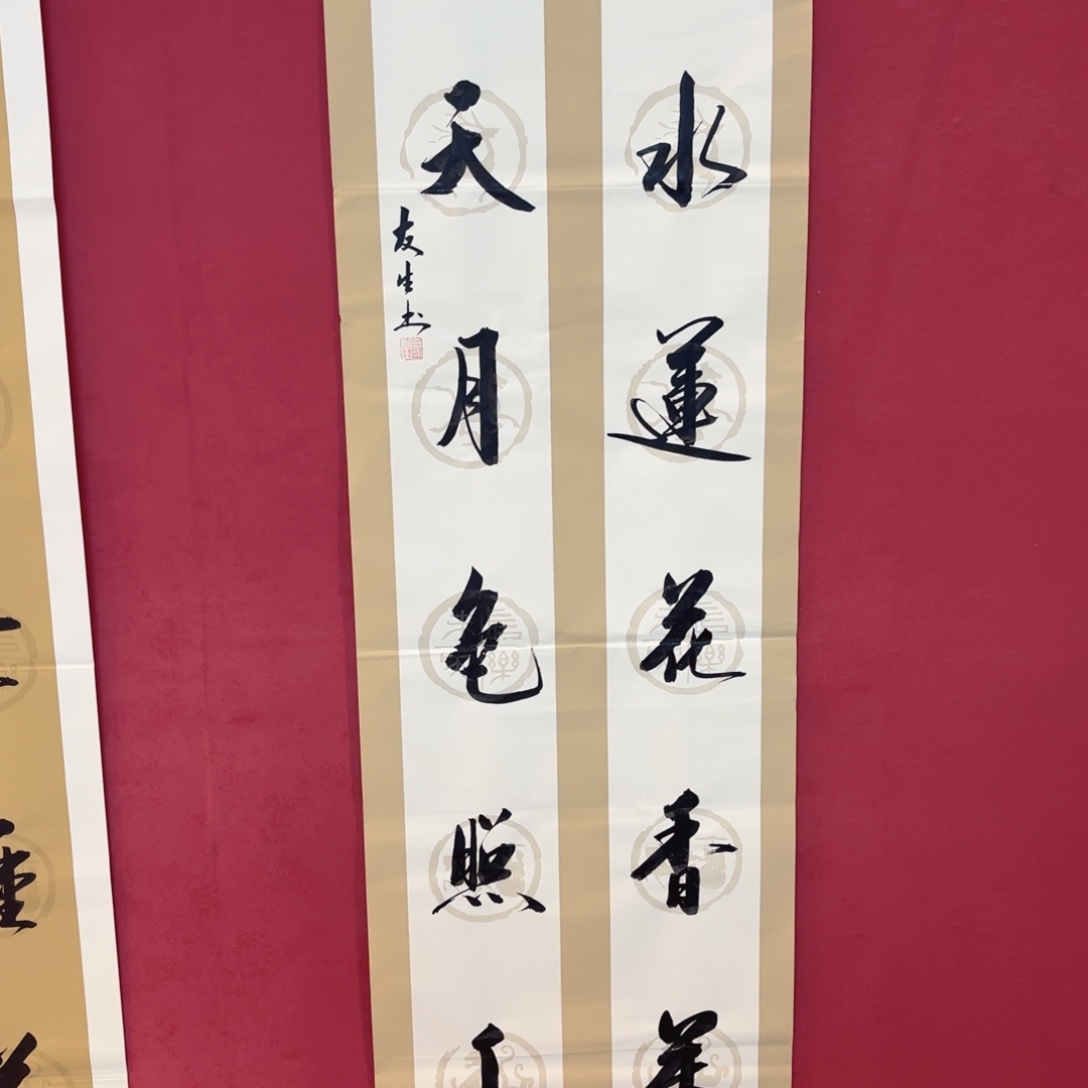 水蓮花香
天月色照
友生书